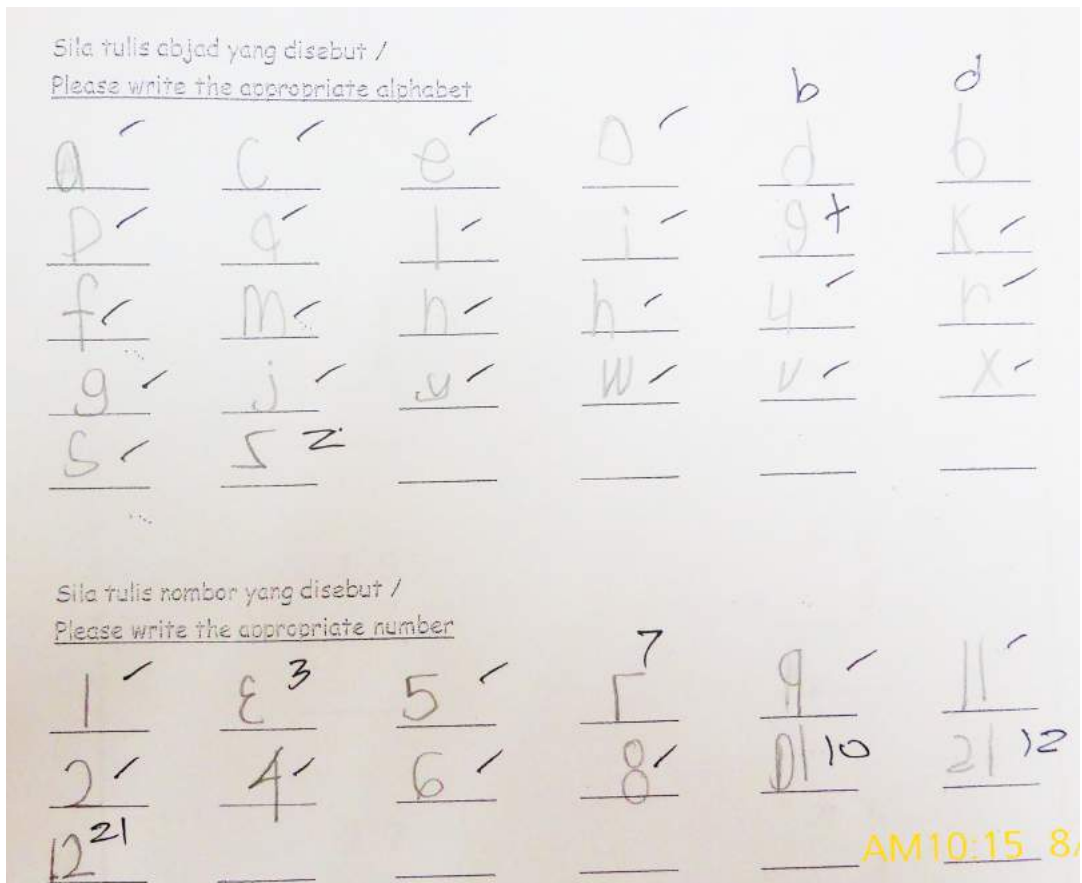 Sila tulis abjad yang disebut /
Please write the appropriate alphabet
b d
a c e o d b
p q l i g t k
f m n h u r
g j y w v x
s z
Sila tulis nombor yang disebut /
Please write the appropriate number
1 ε 3 5 Γ 7 9 11
2 4 6 8 01 10 21 12
12 21
AM10:15 8/